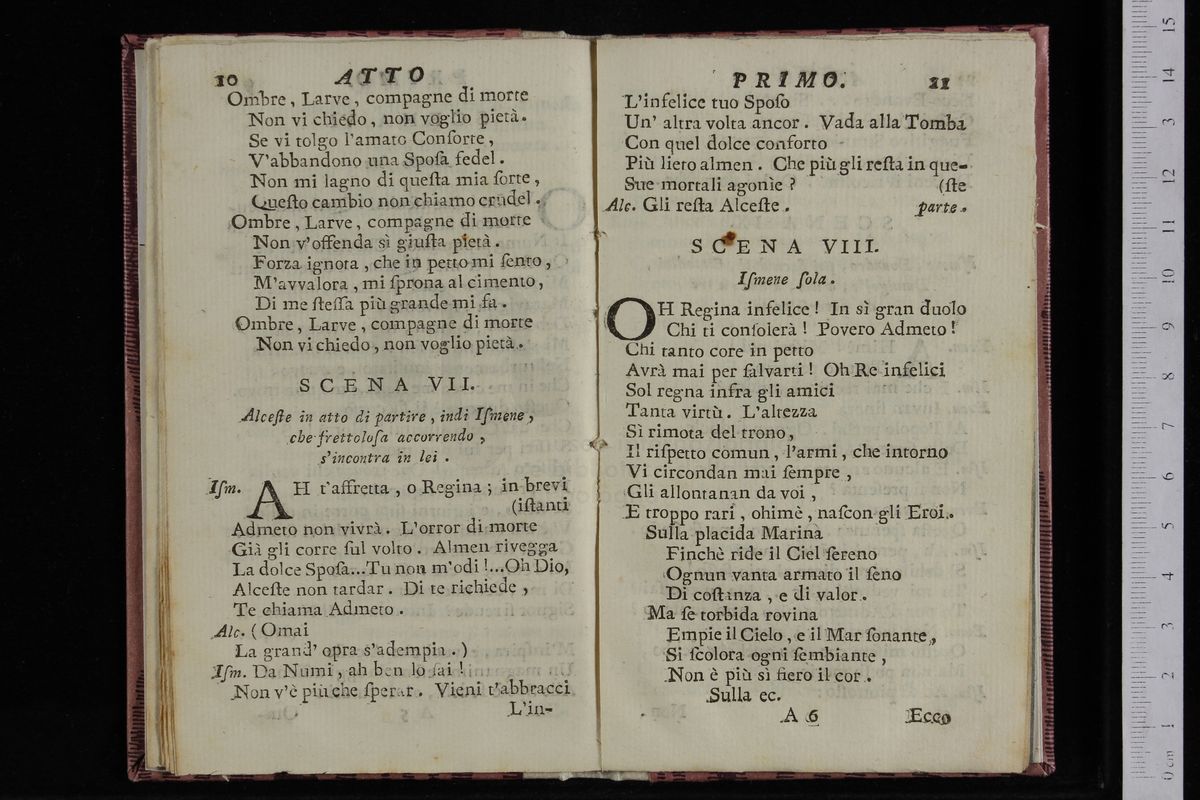 10 ATTO
Ombre, Larve, compagne di morte
Non vi chiedo, non voglio pietà.
Se vi tolgo l'amato Conſorte,
V'abbandono una Spoſa fedel.
Non mi lagno di queſta mia ſorte,
Queſto cambio non chiamo crudel.
Ombre, Larve, compagne di morte
Non v'offenda sì giuſta pietà.
Forza ignota, che in petto mi ſento,
M'avvalora, mi ſprona al cimento,
Di me ſteſſa più grande mi fa.
Ombre, Larve, compagne di morte
Non vi chiedo, non voglio pietà.
SCENA VII.
Alceſte in atto di partire, indi Iſmene,
che frettoloſa accorrendo,
s'incontra in lei.
Iſm. AH t'affretta, o Regina; in brevi
(iſtanti
Admeto non vivrà. L'orror di morte
Già gli corre ſul volto. Almen rivegga
La dolce Spoſa...Tu non m'odi!...Oh Dio,
Alceſte non tardar. Di te richiede,
Te chiama Admeto.
Alc. (Omai
La grand' opra s'adempia.)
Iſm. Da Numi, ah ben lo ſai!
Non v'è più che ſperar. Vieni t'abbracci
L'in-
PRIMO. 11
L'infelice tuo Spoſo
Un' altra volta ancor. Vada alla Tomba
Con quel dolce conforto
Più lieto almen. Che più gli reſta in que-
Sue mortali agonìe? (ſte
Alc. Gli reſta Alceſte. parte.
SCENA VIII.
Iſmene ſola.
OH Regina infelice! In sì gran duolo
Chi ti conſolerà! Povero Admeto!
Chi tanto core in petto
Avrà mai per ſalvarti! Oh Re infelici
Sol regna infra gli amici
Tanta virtù. L'altezza
Sì rimota del trono,
Il riſpetto comun, l'armi, che intorno
Vi circondan mai ſempre,
Gli allontanan da voi,
E troppo rari, ohimè, naſcon gli Eroi.
Sulla placida Marina
Finchè ride il Ciel ſereno
Ognun vanta armato il ſeno
Di coſtanza, e di valor.
Ma ſe torbida rovina
Empie il Cielo, e il Mar ſonante,
Si ſcolora ogni ſembiante,
Non è più sì fiero il cor.
Sulla ec.
A 6 Ecco
0 cm 1 2 3 4 5 6 7 8 9 10 11 12 13 14 15